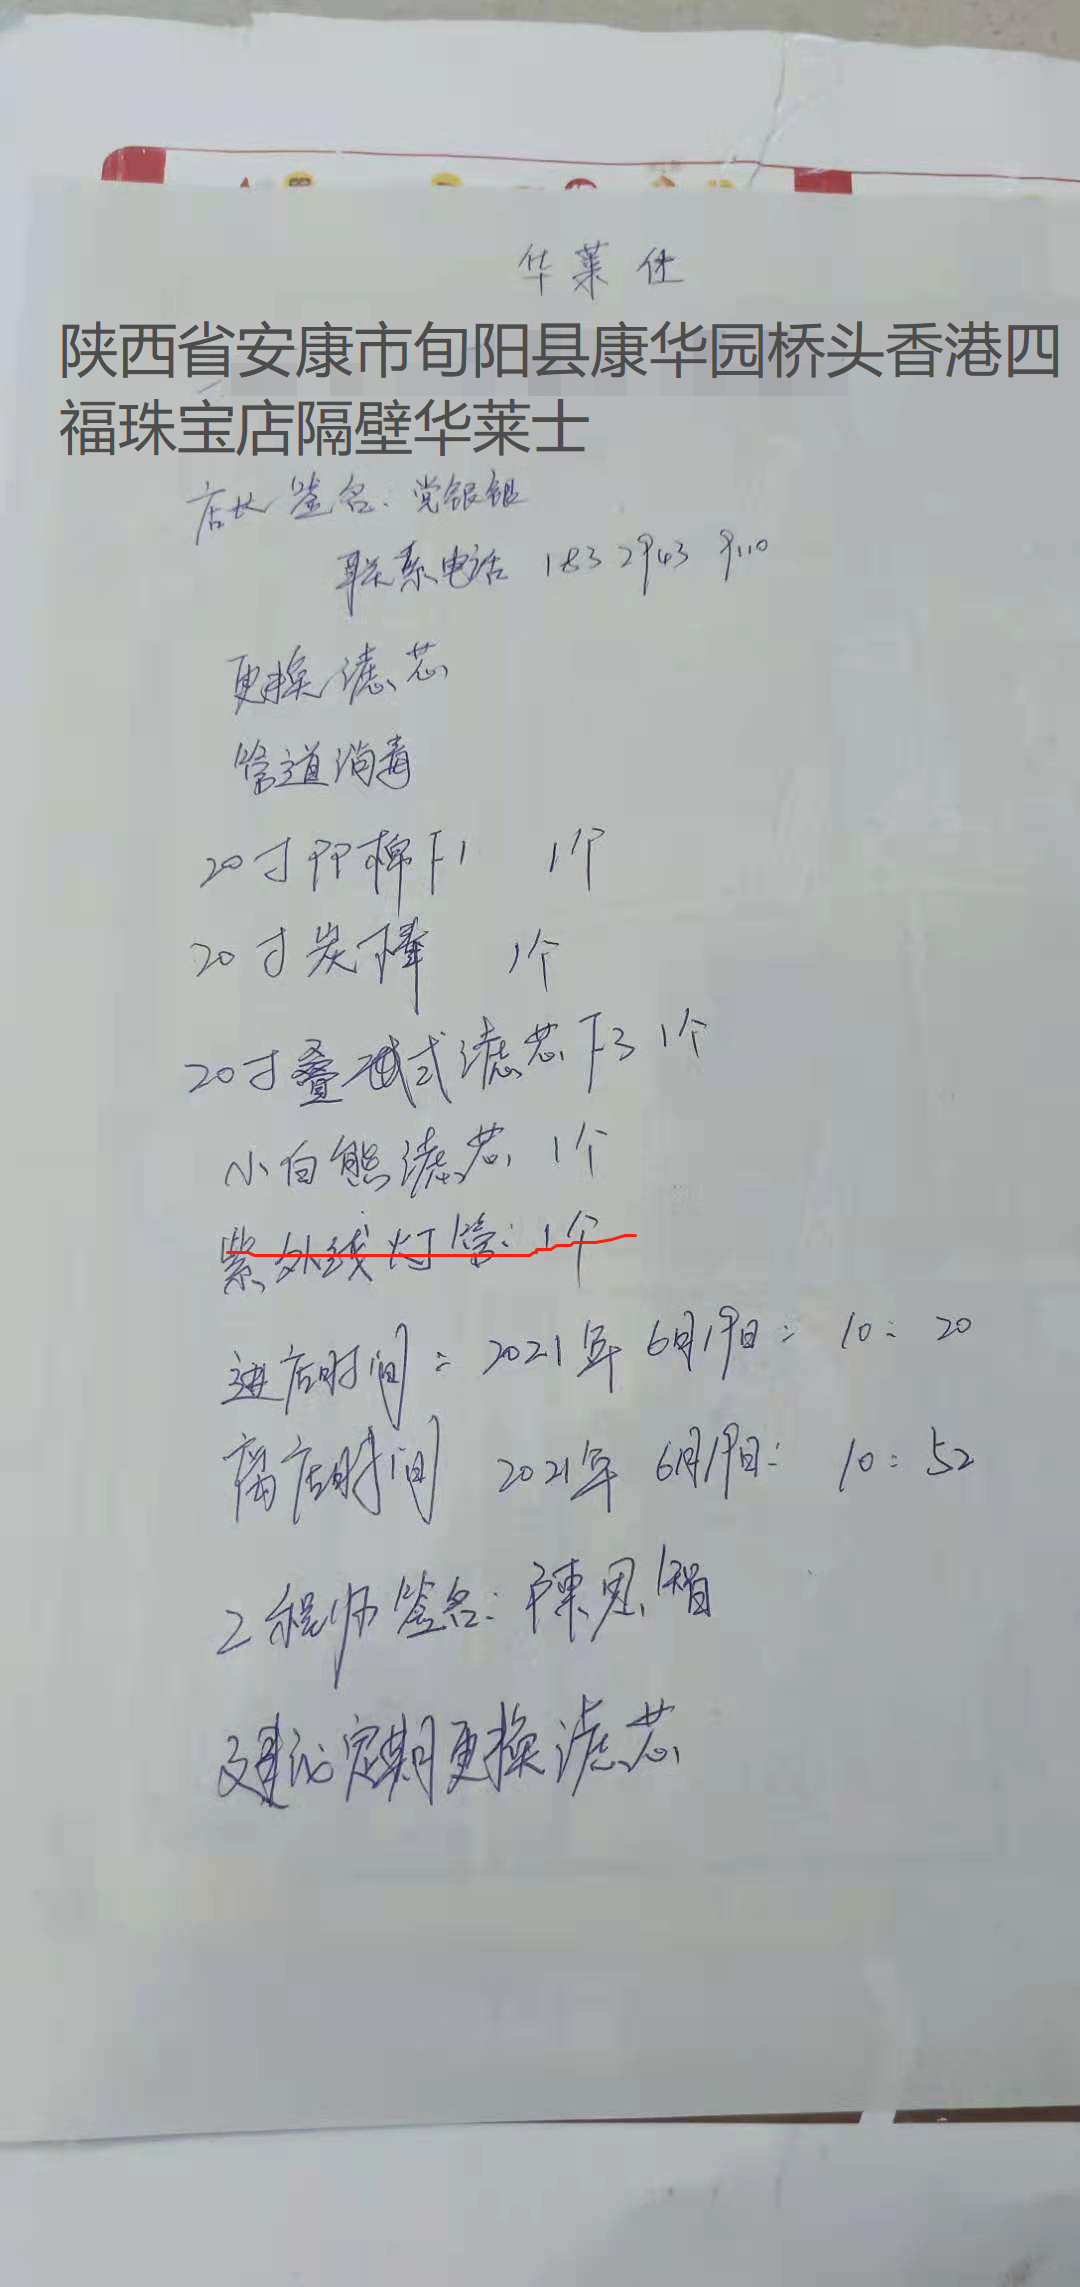 华莱仕
陕西省安康市旬阳县康华园桥头香港四
福珠宝店隔壁华莱士
店长签名:党银银
联系电话 183 2943 9110
更换滤芯
管道消毒
20寸PP棉F1 1个
20寸炭棒 1个
20寸叠式滤芯F3 1个
小白熊滤芯 1个
紫外线灯管:1个
进店时间:2021年6月19日:10:20
离店时间 2021年6月19日:10:52
工程师签名:陳思智
建议定期更换滤芯